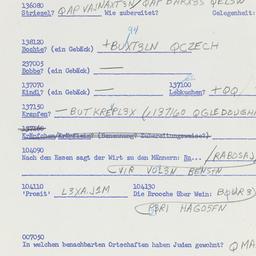 136080
Striezel? QAPVAJNAXT3N/QAP BARXES QELSW
Wie zubereitet? Gelegenheit:
94
138120
Bochte? (ein Gebäck) +BUXT3LN QCZECH
237005
Bobbe? (ein Gebäck) —
137070 137100
Kindl? (ein Gebäck) — Lebkuchen? +QQ/
137150
Krapfen? —BUT KREPL3X (↓137160 QGLEDDUGHN
137160
104090
Nach dem Essen sagt der Wirt zu den Männern: Na... /RABOSAJ,
VIR VOL3N BENSTN
104110 104130
'Prosit' L3XA.J1M Die Brooche Über Wein: BQUR3)
P3RI HAGOSFN
007050
In welchen benachbarten Ortschaften haben Juden gewohnt? QMA